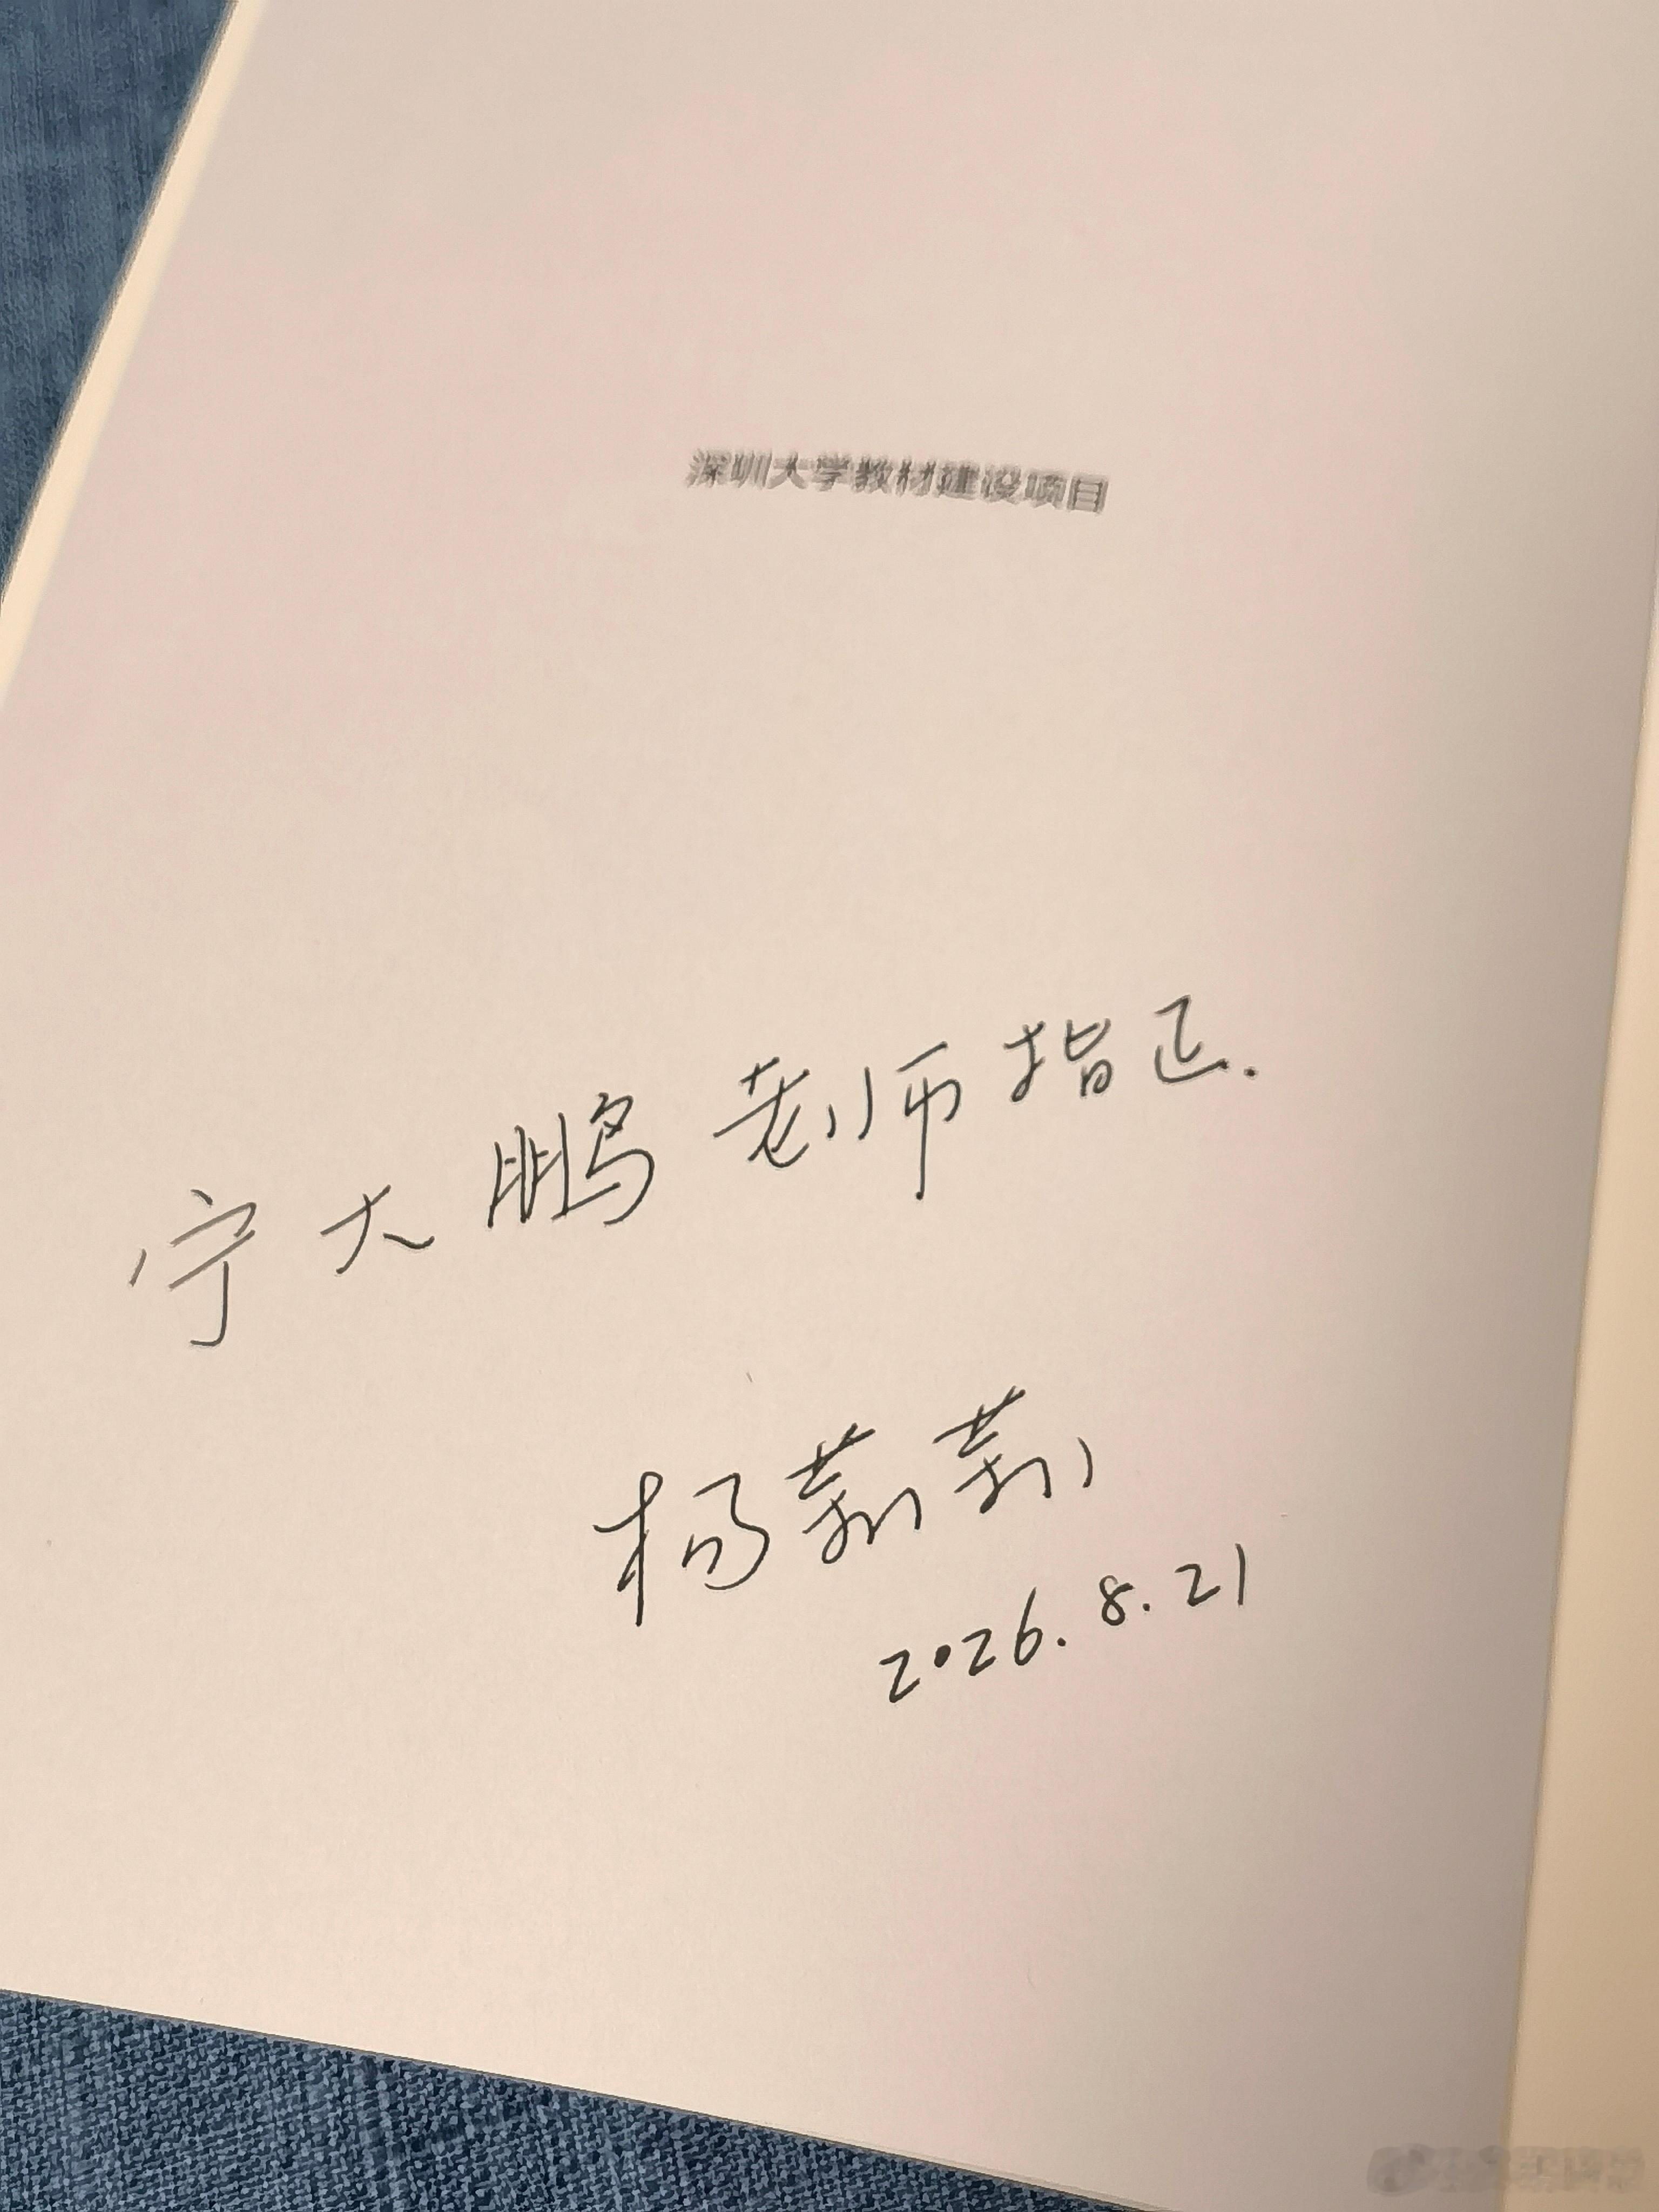 深圳大学教材建设项目
宁大鹏老师指正.
杨莉莉
2026.8.21